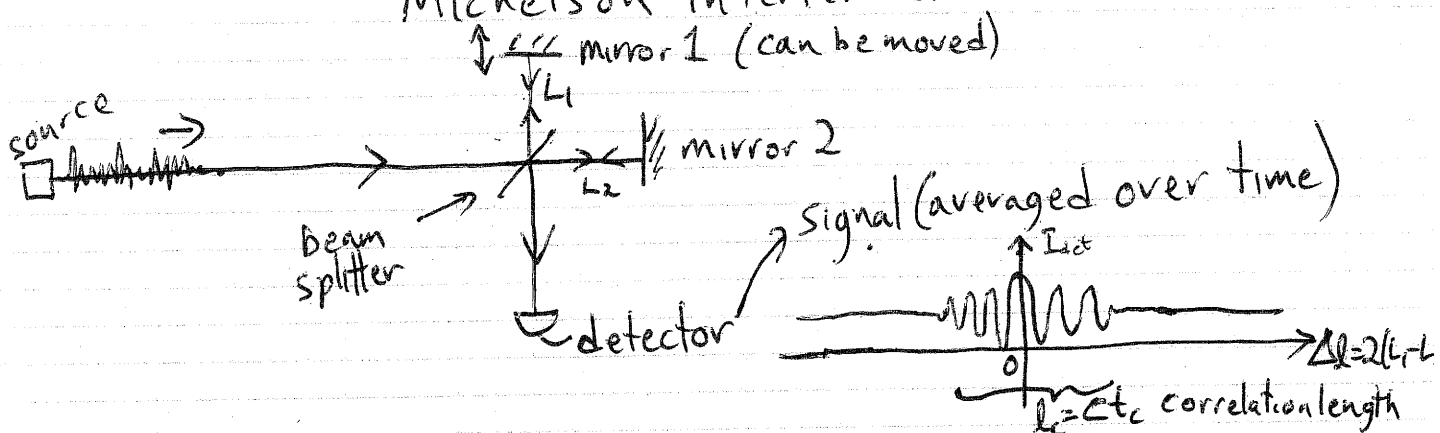 Michelson
mirror 1 (can be moved)
L1
source
mirror 2
L2
beam
splitter
signal (averaged over time)
detector
0
Δl=2(L1-L
lc=ctc correlation length